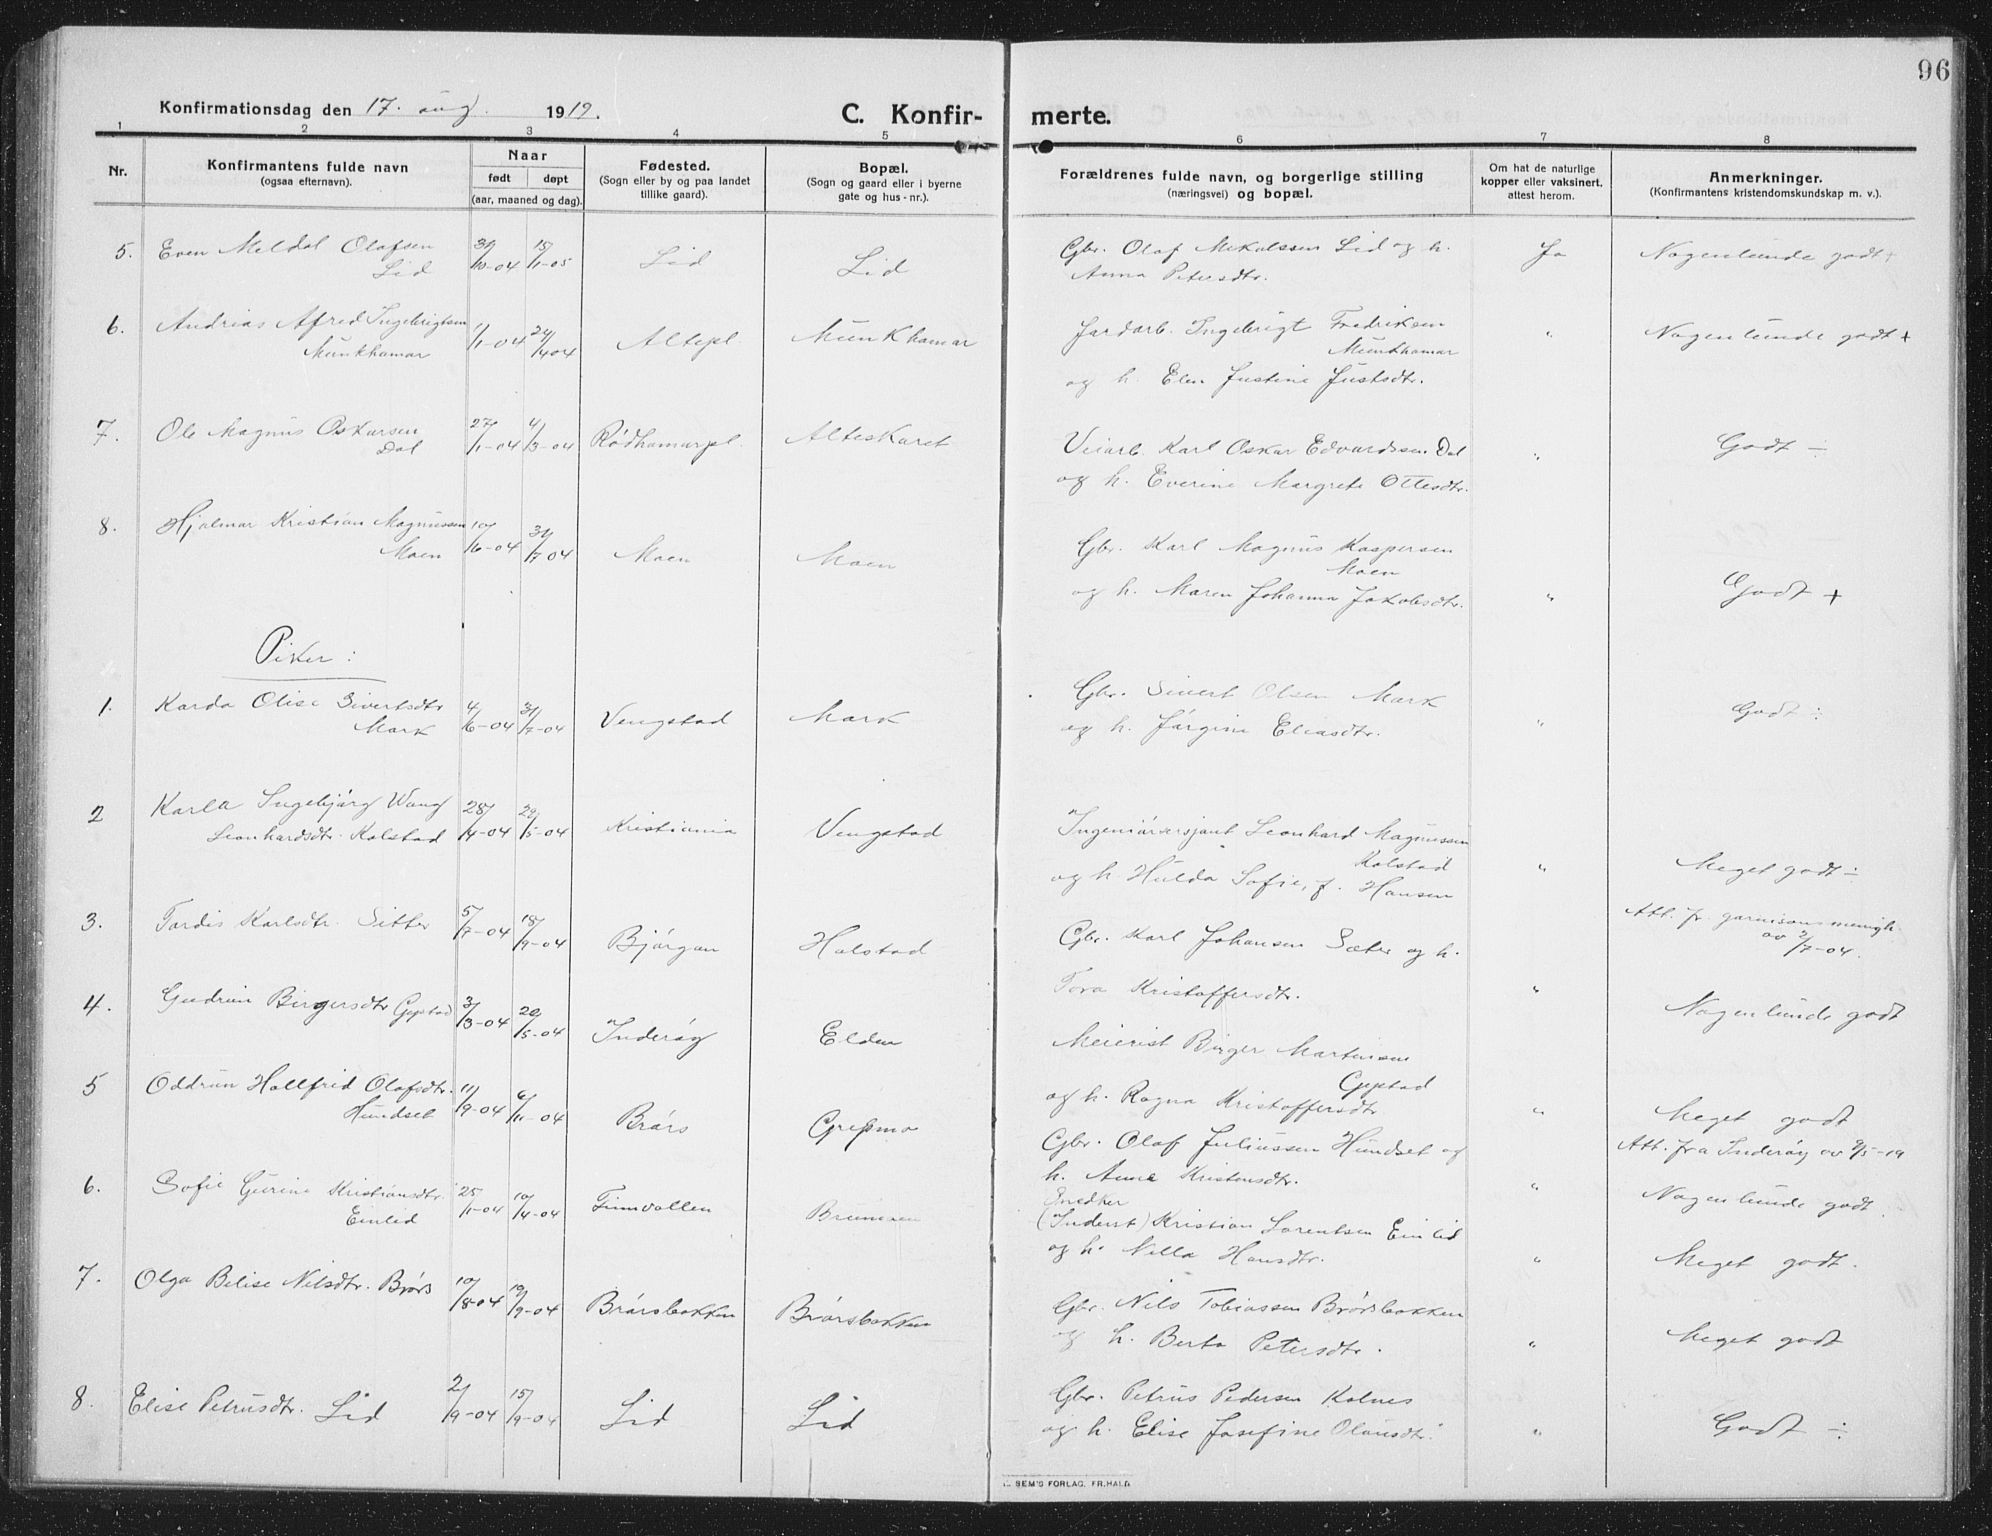 96
Konfirmationsdag den 17. aug. 1919.
C. Konfir-
merte.
1 2 3 4 5 6 7 8
Nr.
Konfirmantens fulde navn
(ogsaa efternavn).
Naar
født døpt
(aar, maaned og dag).
Fødested.
(Sogn eller by og paa landet
tillike gaard).
Bopæl.
(Sogn og gaard eller i byerne
gate og hus-nr.).
Forældrenes fulde navn, og borgerlige stilling
(næringsvei) og bopæl.
Om hat de naturlige
kopper eller vaksinert,
attest herom.
Anmerkninger.
(Konfirmantens kristendomskundskap m. v.).
5. Even Meldal Olafsen
Lid
31/10-04 15/1-05 Lid Lid
Gbr. Olaf Mikalssen Lid og h.
Anna Petersdtr.
Ja Nogenlunde godt +
6. Andrias Afred Ingebrigtsen
Munkhamar
1/1-04 24/4 04 Altepl Munkhamar
Jardarb. Ingebrigt Fredriksen
Munkhamar
og h. Elen Justine Justsdtr.
" Nogenlunde godt +
7. Ole Magnus Oskarsen
Dal
27/1-04 4/3-04 Rødhamarpl. Alteskaret
Veiarb. Karl Oskar Edvardssen Dal
og h. Everine Margrete Ottesdtr.
" Godt ÷
8. Hjalmar Kristian Magnussen
Moen
10/6-04 31/7 04 Moen Moen
Gbr. Karl Magnus Kaspersen
Moen
og h. Maren Johanna Jakobsdtr.
" Godt +
Piker:
1. Karda Olise Sivertsdtr
Mark
4/6-04 31/7-04 Vengstad Mark
Gbr. Sivert Olsen Mark
og h. Jørgine Eliasdtr.
" Godt ÷
2 Karla Ingebjørg Wang
Leonhardsdtr. Kolstad
28/4-04 29/5-04 Kristiania Vengstad
Ingeniørersjant Leonhard Magnussen
Kolstad
og h. Hulda Sofie, f. Hansen
" Meget godt ÷
Att. fr. garnisonsmenigh.
av 2/7-04.
3. Tordis Karlsdtr. Sitter
5/7-04 18/9-04 Bjørgan Halstad
Gbr. Karl Johansen Sæter og h.
Tora Kristoffersdtr.
" Nogenlunde godt
4. Gudrun Birgersdtr Gypstad
3/3-04 20/5-04 Inderøy Elden
Meierist Birger Martinsen
Gypstad
og h. Ragna Kristoffersdtr
" Meget godt
Att. fra Inderøy av 9/5-19
5 Oddrun Hallfrid Olafsdtr.
Hundset
11/9-04 6/11-04 Brørs Grepmo
Gbr. Olaf Juliussen Hundset og
h. Anna Kristensdtr.
" Nogenlunde godt.
6. Sofie Gurine Kristiansdtr.
Einlid
25/1-04 10/4-04 Finnvollen
Snedker
(Inderst) Kristian Lorentsen Einlid
og h. Nella Hansdtr.
" Meget godt.
7. Olga Belise Nilsdtr. Brørs
10/8-04 19/9-04 Brørsbakken Brørsbakken
Gbr. Nils Tobiassen Brørsbakken
og h. Berta Petersdtr.
" Meget godt
8. Elise Petrusdtr. Lid
2/9-04 15/9-04 Lid Lid
Gbr. Petrus Pedersen Kolnes
og h. Elise Josefine Olausdtr.
" Godt ÷
SEM'S FORLAG, FR.HALD